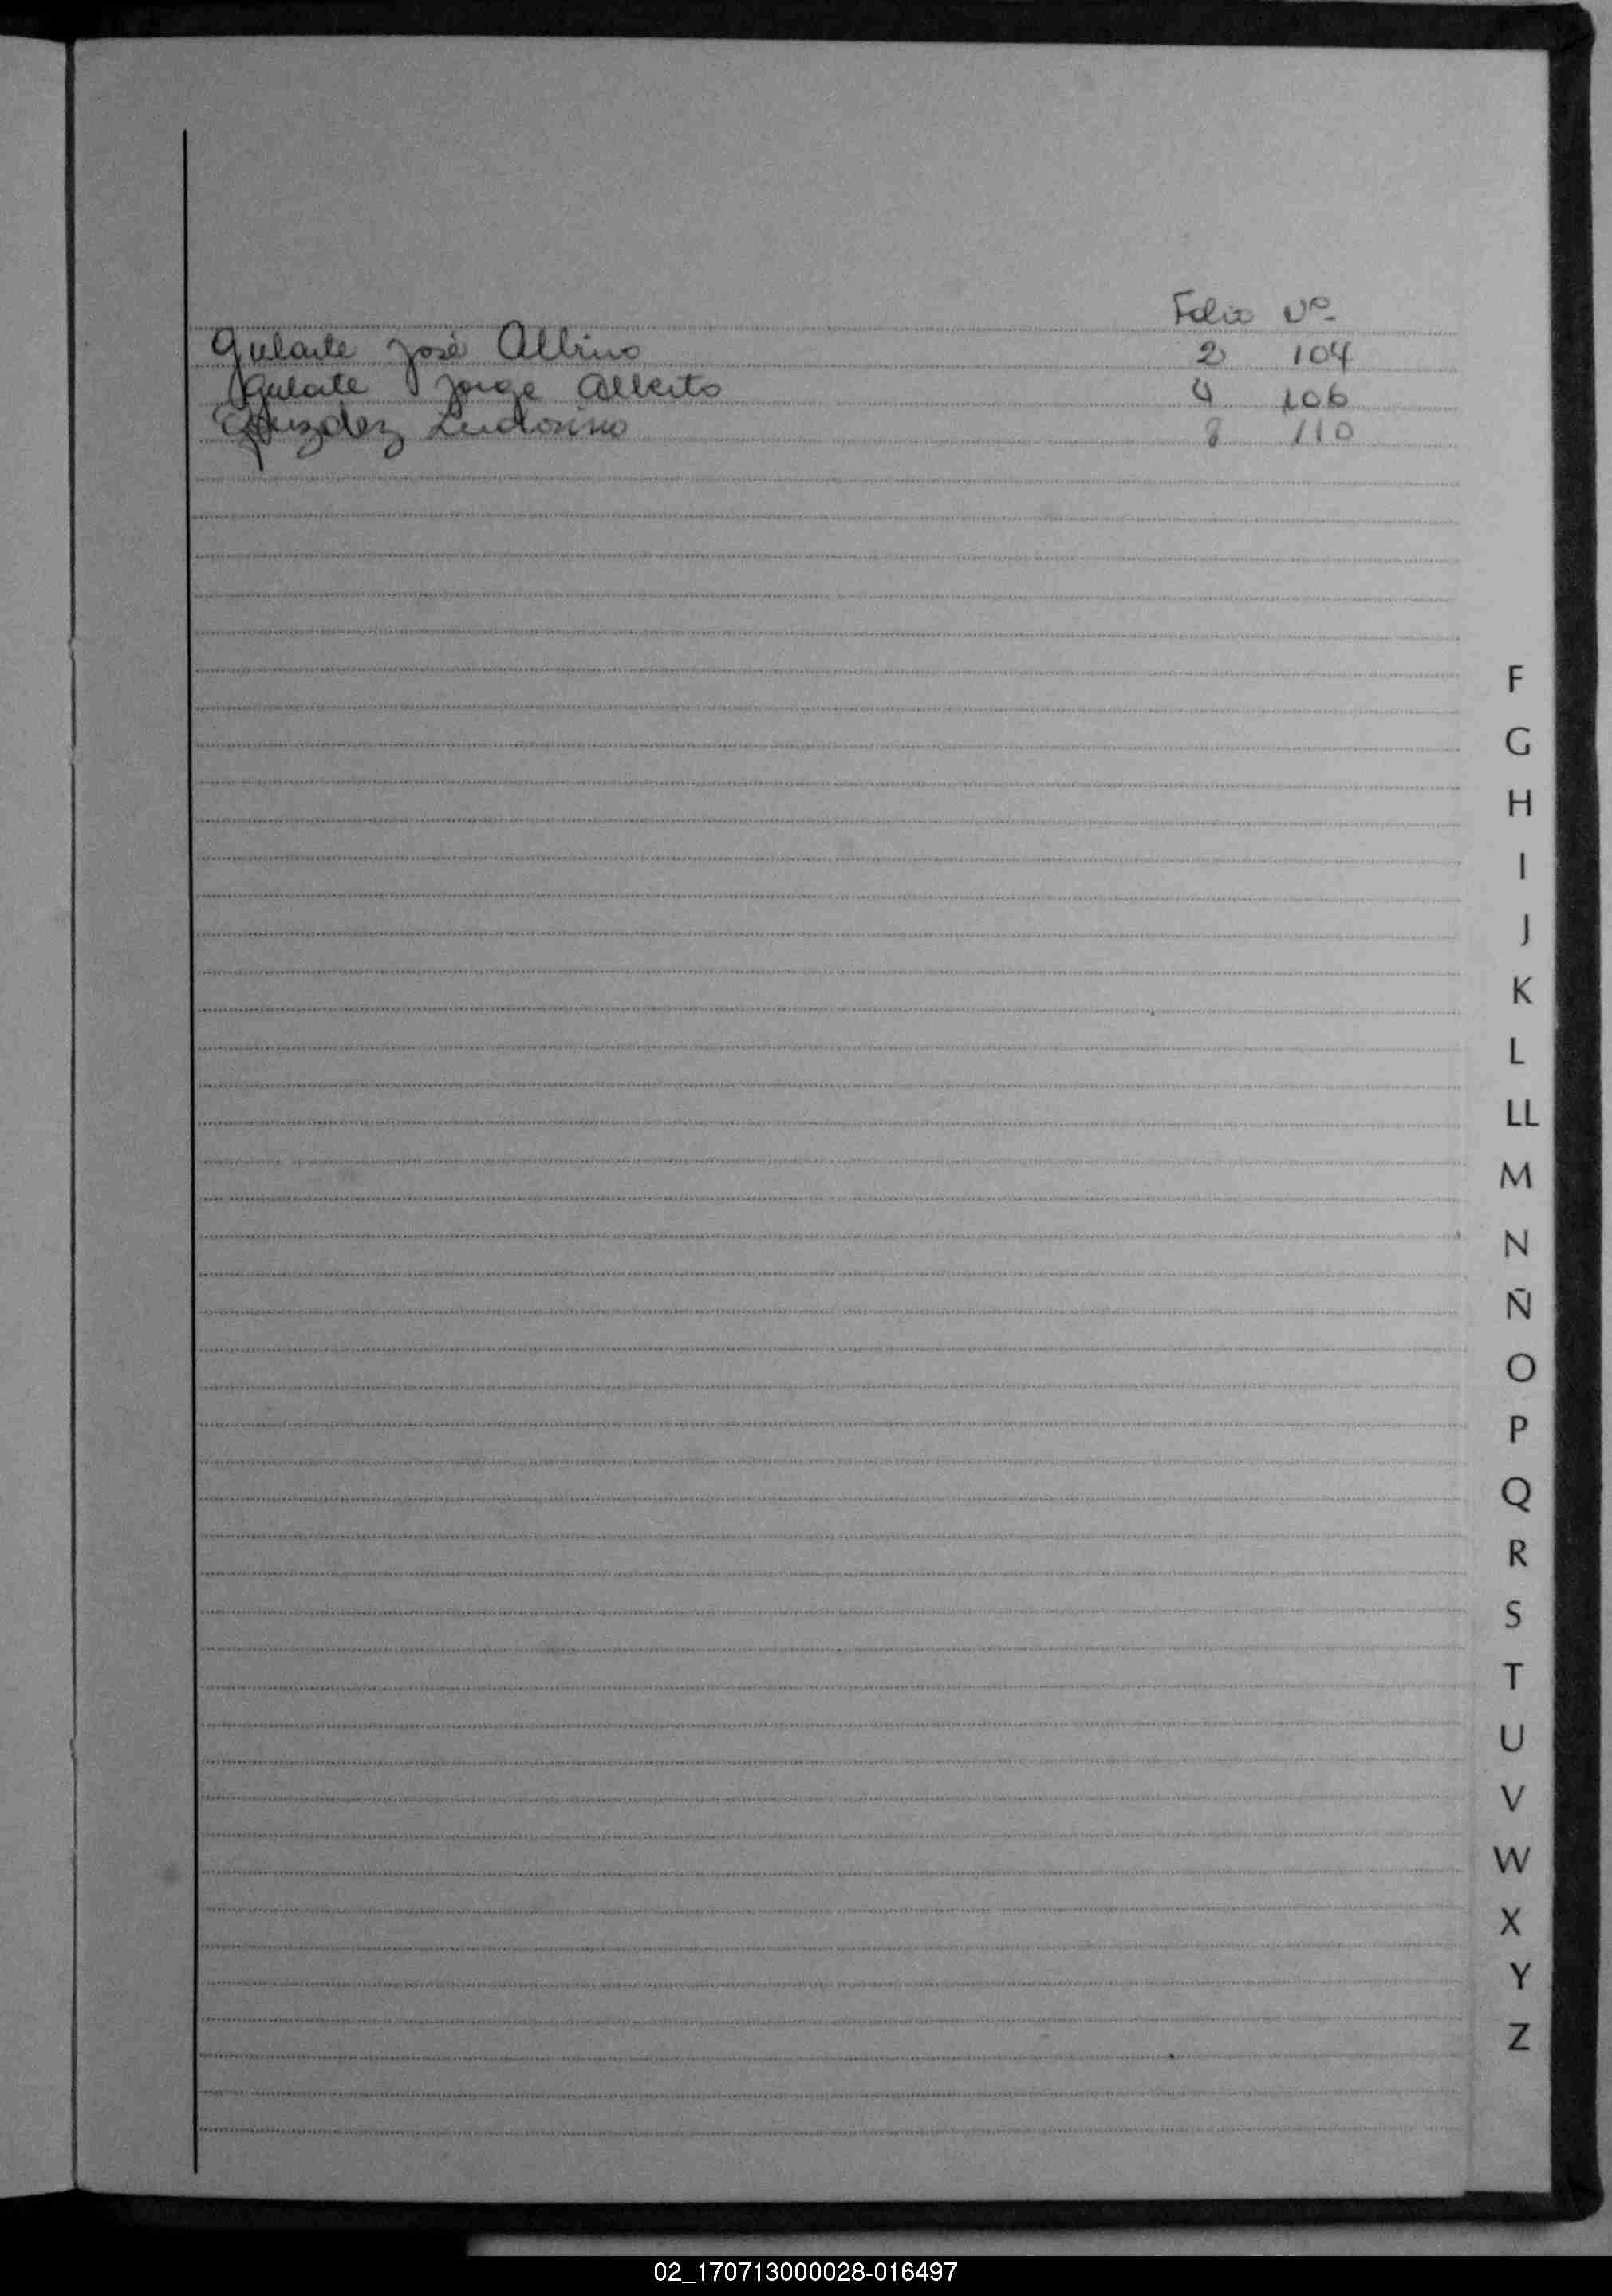 Folio Nº
Gularte José Albino 2 104
Gularte Jorge Alberto 4 106
Ludovino 8 110
F
G
H
I
J
K
L
LL
M
N
Ñ
O
P
Q
R
S
T
U
V
W
X
Y
Z
02_170713000028-016497